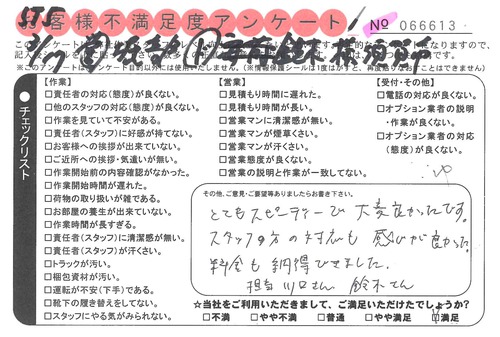 お客様不満足度アンケート!
No 066613
【作業】
□責任者の対応(態度)が良くない。
□他のスタッフの対応(態度)が良くない。
□作業を見ていて不安がある。
□責任者(スタッフ)に好感が持てない。
□お客様への挨拶が出来ていない。
□ご近所への挨拶・気遣いが無い。
□作業開始前の内容確認がなかった。
□作業開始時間が遅れた。
□荷物の取り扱いが雑である。
□お部屋の養生が出来ていない。
□作業時間が長すぎる。
□責任者(スタッフ)に清潔感が無い。
□責任者(スタッフ)が汗くさい。
□トラックが汚い。
□梱包資材が汚い。
□運転が不安(下手)である。
□靴下の履き替えをしてない。
□スタッフにやる気がみられない。
【営業】
□見積もり時間に遅れた。
□見積もり時間が長い。
□営業マンに清潔感が無い。
□営業マンが煙草くさい。
□営業マンが汗くさい。
□営業態度が良くない。
□営業の説明と作業が一致してない。
【受付・その他】
□電話の対応が良くない。
□オプション業者の説明
・作業が良くない。
□オプション業者の対応
(態度)が良くない。
チェックリスト
その他、ご意見・ご要望等ありましたらお書き下さい。
とてもスピーディーで大変良かったです。
スタッフの方の対応も感じが良かった。
料金も納得できました。
担当 川口さん 鈴木さん
☆当社をご利用いただきまして、ご満足いただけたでしょうか?
□不満 □やや不満 □普通 □やや満足 □満足